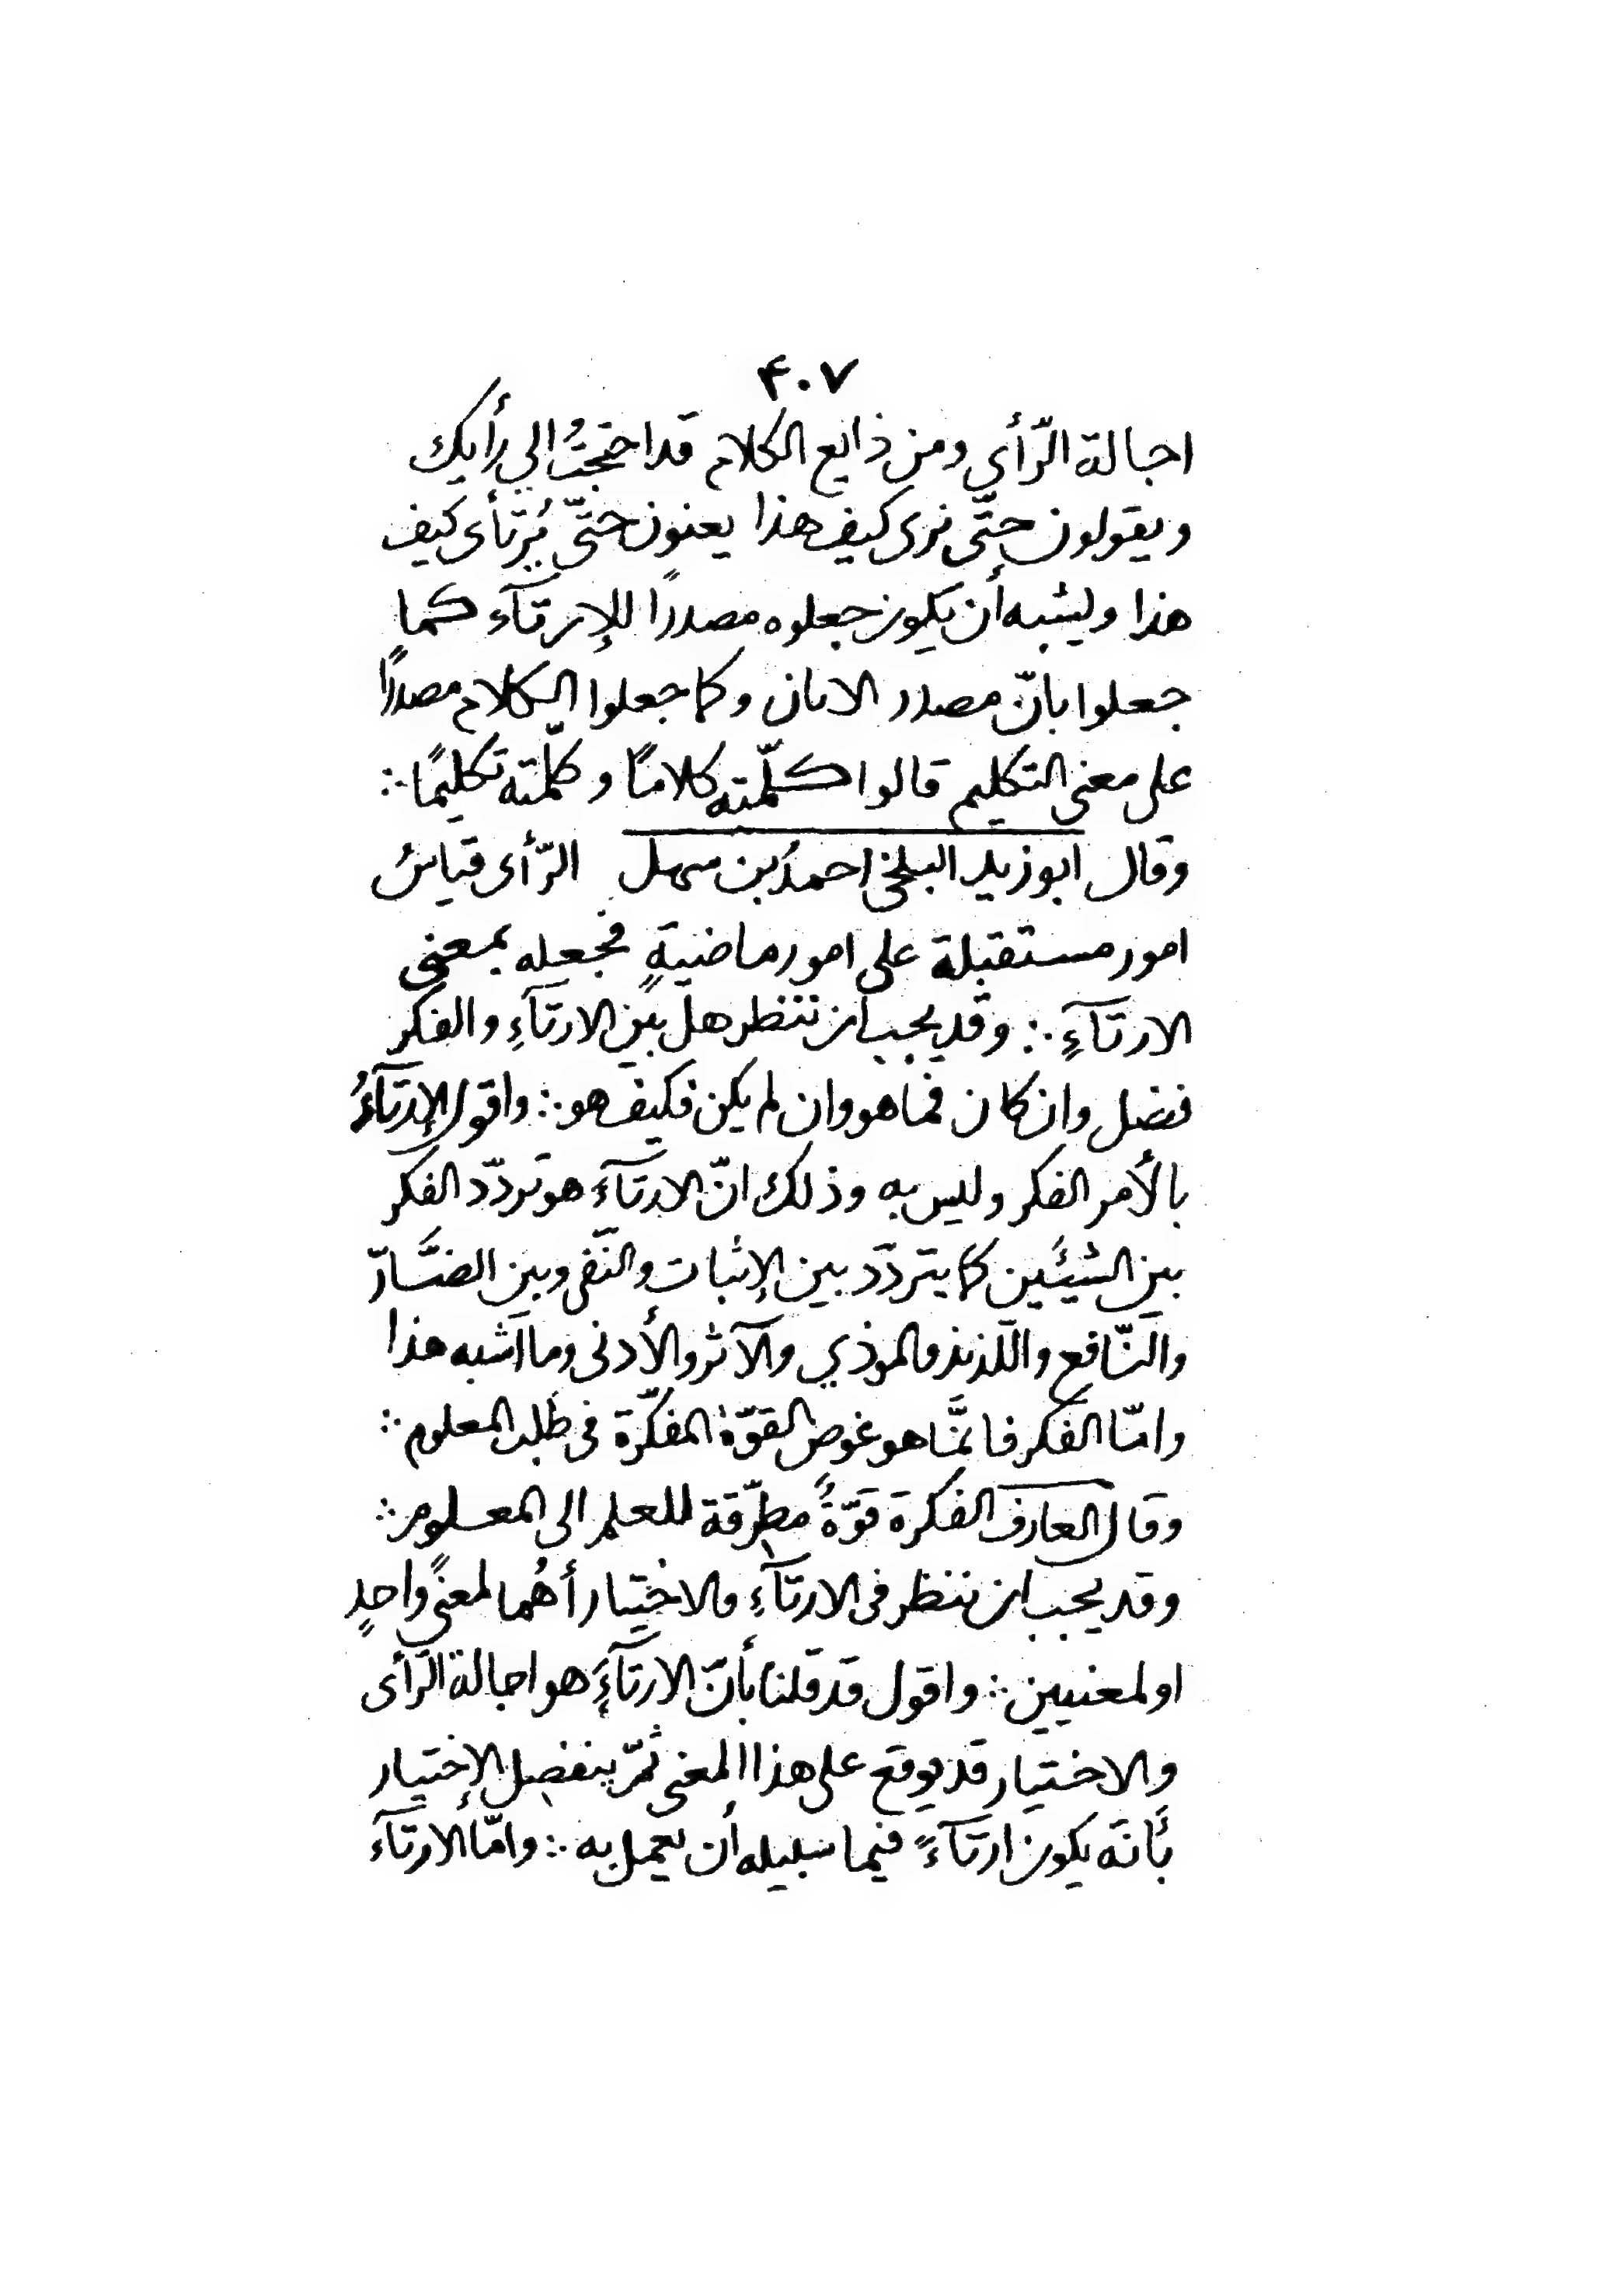 ۴۰۷
اجالة الرّأي ومن ذايع الكلام قد احتجتُ الى رأيك
ويقولون حتّى نرى كيف هذا يعنون حتّى يُرتأى كيف
هذا وليشبه أن يكون جعلوه مصدرًا للإرتآء كما
جعلوا بانّ مصدر الابان وكما جعلوا الكلام مصدرًا
على معنى التكليم قالوا كلّمته كلامًا وكلّمته تكليمًا ∴
وقال ابو زيد البلخي احمدُ بن سهل الرّأى قياسُ
امور مستقبلة على امور ماضيةٍ فجعله بمعنى
الارتآءِ ∴ وقد يجب ان ننظر هل بين الارتآءِ والفكر
فضل وان كان فما هو وان لم يكن فكيف هو ∴ واقول الإرتآءُ
بالأمر الفكر وليس به وذلك انّ الارتآءَ هو تردّد الفكر
بين الشيئين كما يتردّد بين الإثبات والنّفى وبين الضّارّ
والنّافع واللّذيذ والموذي والآثر والأدنى وما اشبه هذا
وامّا الفكر فانّما هو غوص القوّة المفكّرة فى طلب المعلوم ∴
وقال العارف الفكرة قوّةٌ مطرّقة للعلم الى المعلوم ∴
وقد يجب ان ننظر فى الارتآءِ والاختيار أهُما لمعنًى واحدٍ
او لمعنيين ∴ واقول قد قلنا بأنّ الارتآءَ هو اجالة الرّأى
والاختيار قد يوقع على هذا المعنى ثمّ ينفصل الإختيار
بأنّه يكون ارتآءً فيما سبيله أن يعمل به ∴ وامّا الارتآءَ